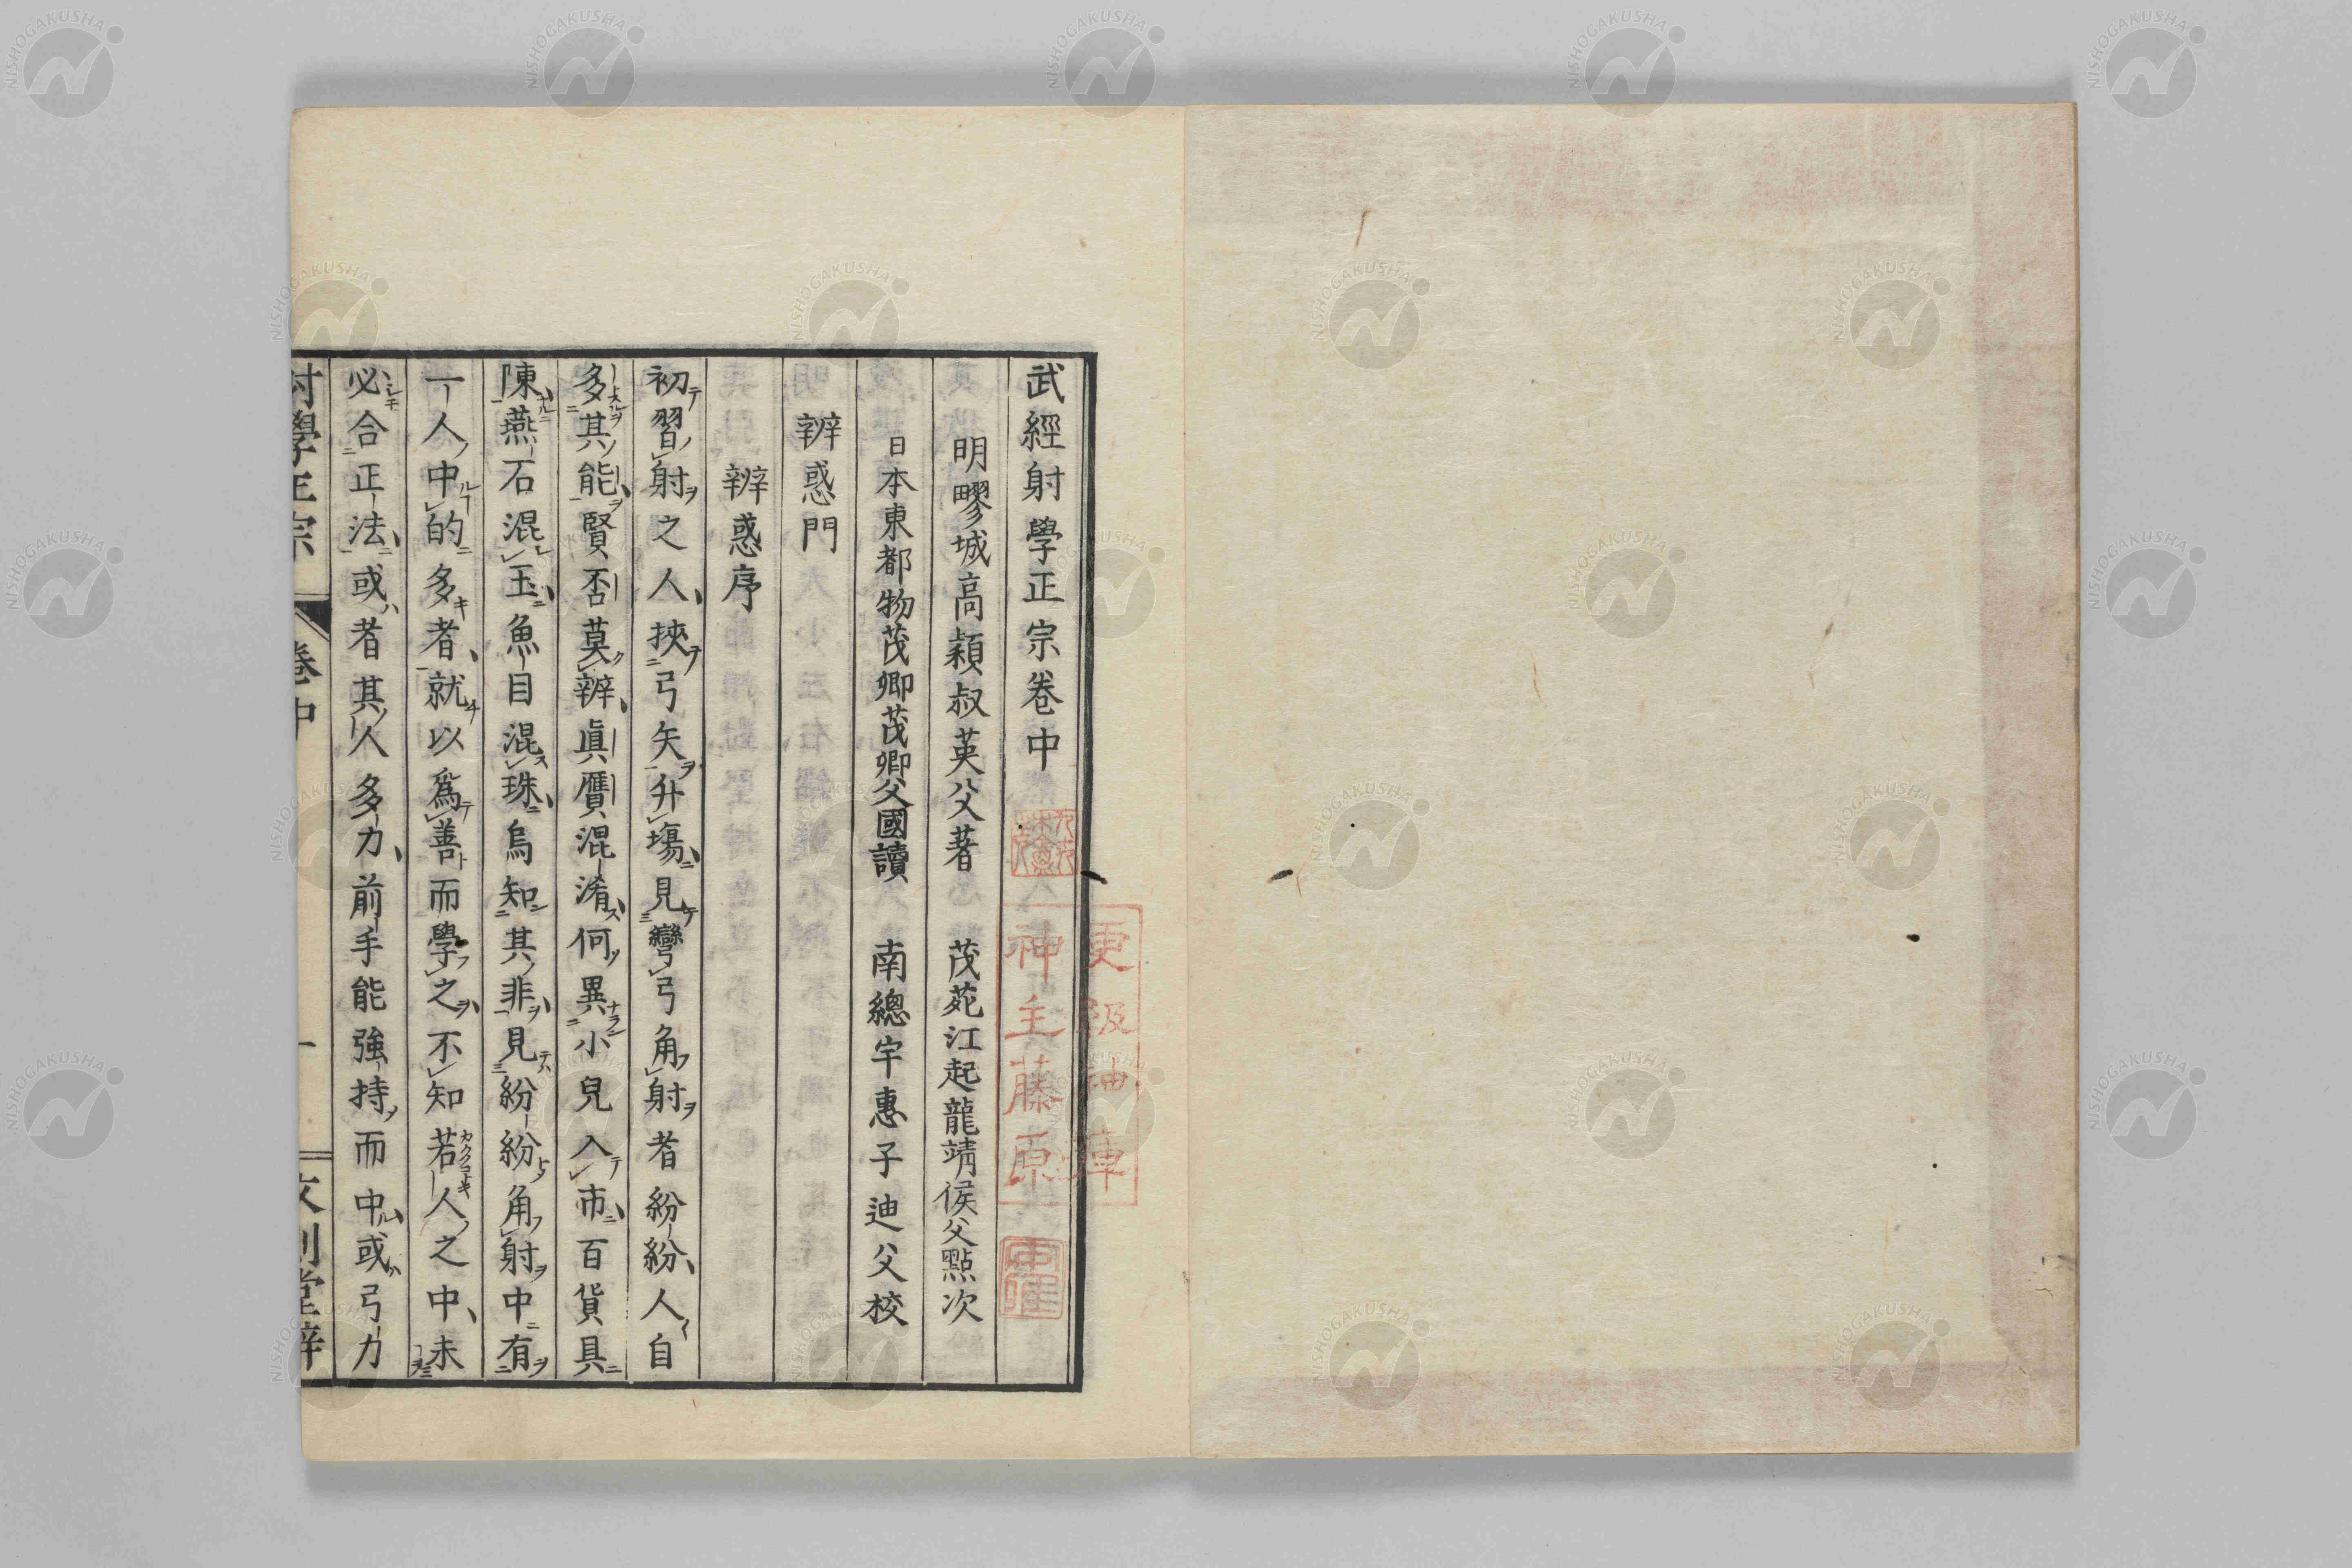 武經射學正宗卷中
明疁城高穎叔英父著 茂苑江起龍靖侯父點次
日本東都物茂卿茂卿父國讀 南總宇惠子迪父校
辨惑門
辨惑序
初習射之人挾弓矢升塲見彎弓角射者紛紛人自
多其能賢否莫辨眞贋混淆何異小兒入市百貨具
陳燕石混玉魚目混珠烏知其非見紛紛角射中有
一人中的多者就以爲善而學之不知若人之中未
必合正法或者其人多力前手能強持而中或弓力
射學正宗 卷中 一
更級神庫
神主藤原
NISHOGAKUSHA